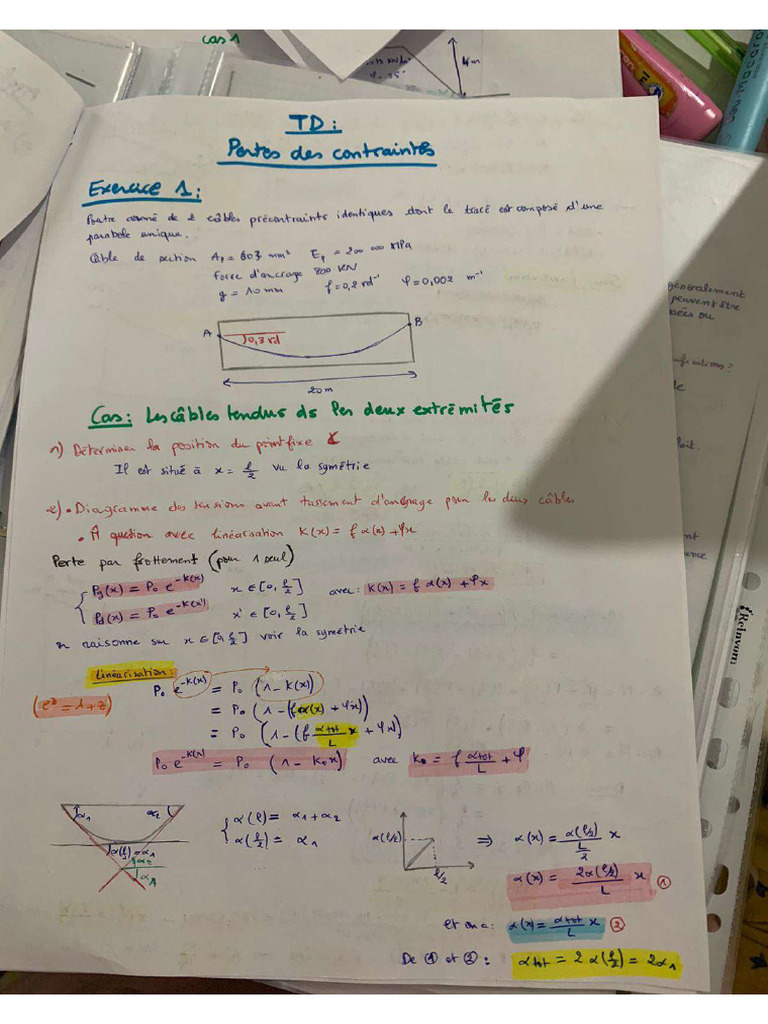 cas 1
4m
TD:
Pertes des contraintes
Exercice 1:
Poutre armé de 2 câbles précontraints identiques dont le tracé est composé d'une
parabole unique.
Câble de section Ap = 603 mm² Ep = 200 000 MPa
Force d'ancrage 800 KN
g = 10 mm f = 0,2 rd⁻¹ φ = 0,002 m⁻¹
A
B
0,3 rd
20m
Cas: Les câbles tendus ds les deux extrémités
1) Déterminer la position du point fixe
Il est situé à x = l/2 vu la symétrie
2) • Diagramme des tensions avant tassement d'ancrage pour les deux câbles
• A question avec linéarisation K(x) = f α(x) + φx
Perte par frottement (pour 1 seul)
Pg(x) = P₀ e^-K(x) x ∈ [0, l/2] avec: K(x) = f α(x) + φx
Pd(x) = P₀ e^-K(x') x' ∈ [0, l/2]
on raisonne sur x ∈ [0, l/2] voir la symétrie
linéarisation:
P₀ e^-K(x) = P₀ (1 - K(x))
(e^z = 1+z)
= P₀ (1 - (f α(x) + φx))
= P₀ (1 - (f αtot/L x + φx))
P₀ e^-K(x) = P₀ (1 - K₀x) avec K₀ = f αtot/L + φ
α1 α2
α(l/2) = α1
α2
α1
α(l) = α1 + α2
α(l/2) = α1
α(l/2)
l/2
⇒ α(x) = α(l/2)/(L/2) x
α(x) = 2α(l/2)/L x ①
et on a: α(x) = αtot/L x ②
De ① et ②: αtot = 2 α(l/2) = 2α1
généralement
peuvent être
ou
Reinvom